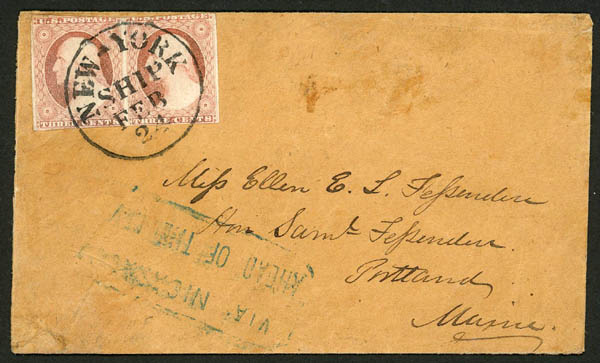 U.S. POSTAGE U.S. POSTAGE
THREE CENTS THREE CENTS
NEW-YORK
SHIP
FEB
Miss Ellen E. L. Fessenden
Hon Saml. Fessenden.
Portland
Maine.
VIA
AHEAD OF THE